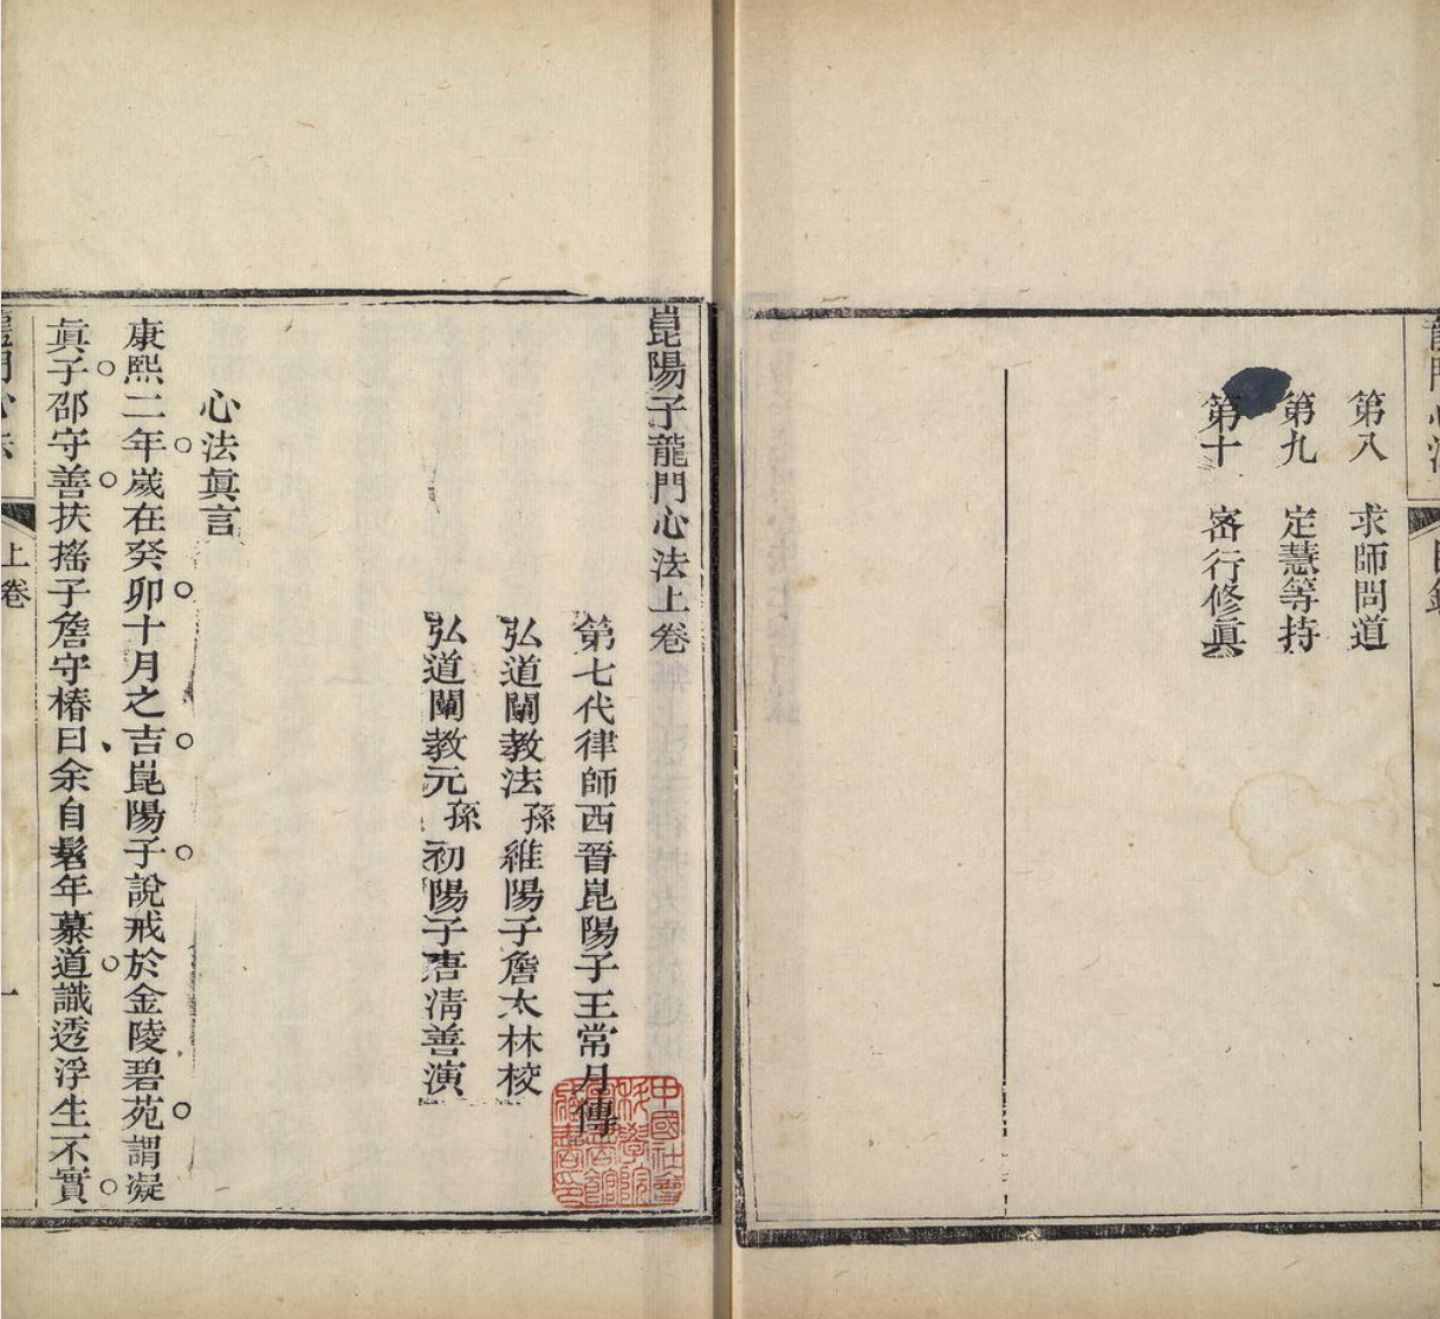 第八　求師問道
第九　定慧等持
第十　密行修眞
崑陽子龍門心法上卷
第七代律師西晉崑陽子王常月傳
弘道闡教法孫維陽子詹太林校
弘道闡教元孫初陽子唐淸善演
心法眞言
康熙二年歲在癸卯十月之吉崑陽子說戒於金陵碧苑謂凝
眞子邵守善扶搖子詹守椿曰余自髫年慕道識透浮生不實
龍門心法
上卷
一
中國社會
科學院